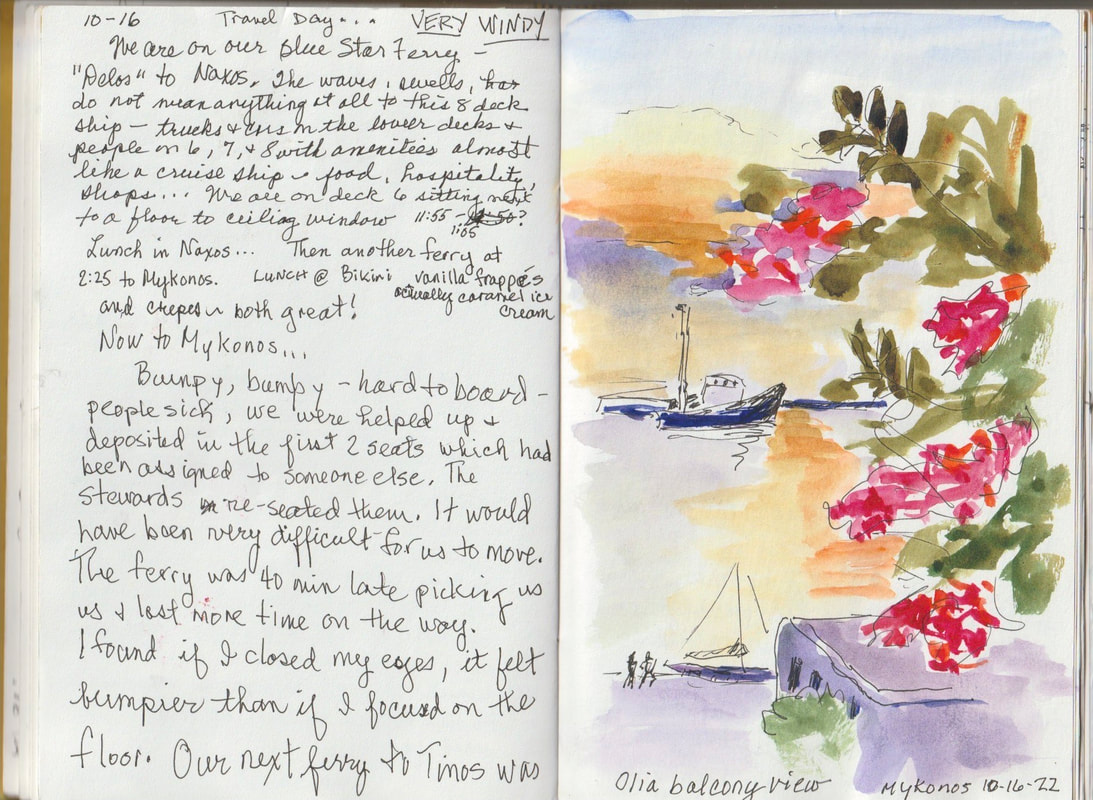 10-16 Travel Day... VERY WINDY
We are on our Blue Star Ferry -
"Delos" to Naxos. The waves, swells, has
do not mean anything at all to this 8 deck
ship - trucks & cars on the lower decks &
people on 6, 7, & 8 with amenities almost
like a cruise ship - food, hospitality,
shops... We are on deck 6 sitting next
to a floor to ceiling window 11:55 - 12:50?
1:05
Lunch in Naxos... Then another ferry at
2:25 to Mykonos. LUNCH @ Bikini vanilla frappés
actually caramel ice
cream
and crepes both great!
Now to Mykonos...
Bumpy, bumpy - hard to board -
people sick, we were helped up &
deposited in the first 2 seats which had
been assigned to someone else. The
stewards re-seated them. It would
have been very difficult for us to move.
The ferry was 40 min late picking us
us & lost more time on the way.
I found if I closed my eyes, it felt
bumpier than if I focused on the
floor. Our next ferry to Tinos was
Olia balcony view Mykonos 10-16-22